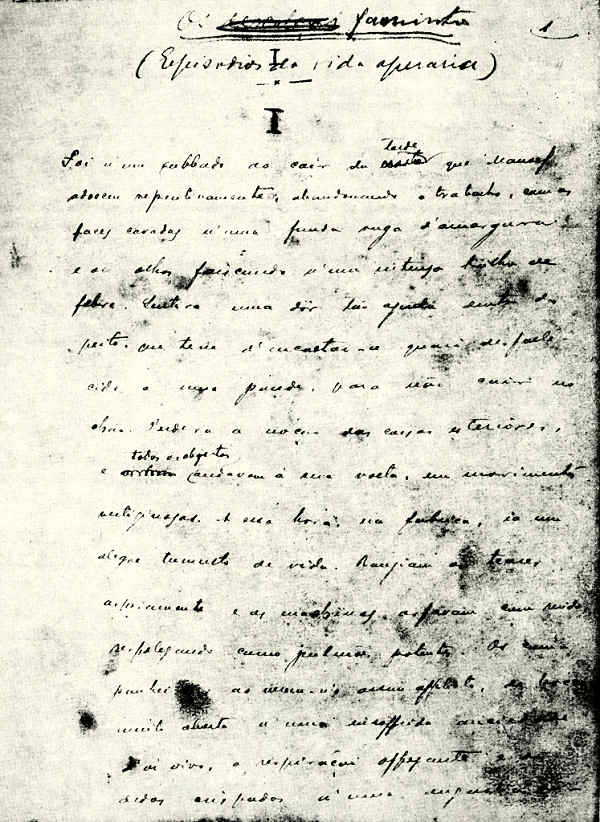 Os famintos
1
(Episodios da vida operaria)
I
Foi n'um sabbado ao cair da tarde que Manoel
adoeceu repentinamente, abandonando o trabalho, com as
faces cavadas n'uma funda ruga d'amargura
e os olhos faiscando n'um intenso brilho de
febre. Sentira uma dôr tão aguda dentro do
peito, que teve d'encostar-se quasi desfale-
cido a uma parede, para não cair no
chão. Perdera a noção das cousas exteriores,
e todos os objectos andavam á sua volta, em movimentos
vertiginosos. A essa hora, na fabrica, ia um
alegre tumulto de vida. Rangiam os teares
asperamente e as machinas arfavam com ruido
resfolegando como pulmões potentes. Os com-
panheiros ao verem-n'o assim afflicto, a bocca
muito aberta n'uma soffrida anciedade
a respiração offegante e os
dedos crispados n'uma